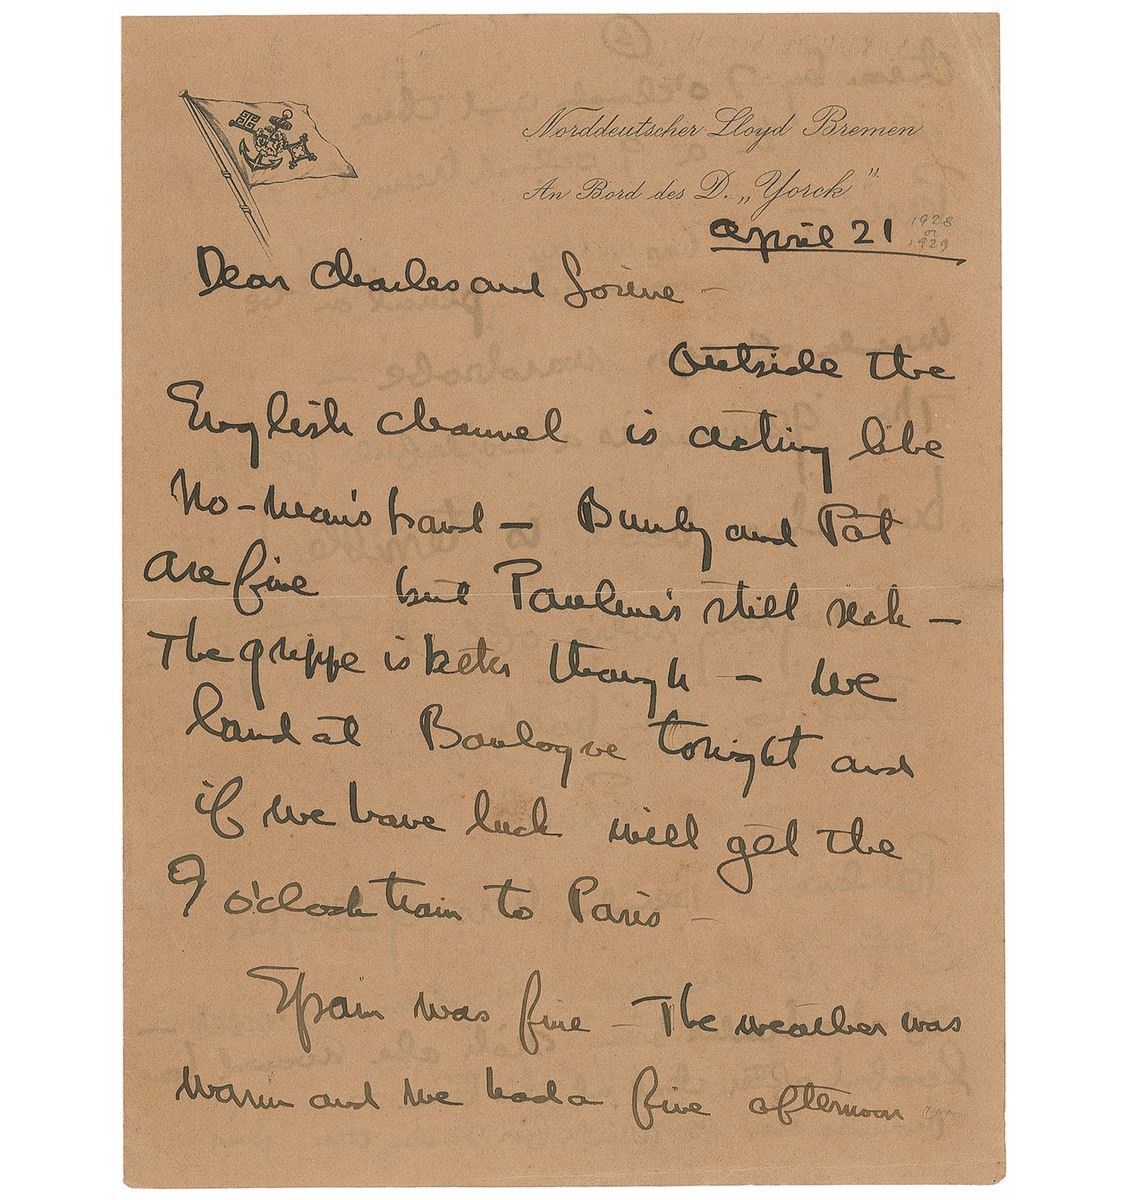 Norddeutscher Lloyd Bremen
An Bord des D. „Yorck"
April 21
1928
or
1929
Dear Charles and Lorine –
Outside the
English channel is acting like
No-man's land – Bumby and Pat
are fine but Pauline's still sick –
The grippe is better though – We
land at Boulogne tonight and
if we have luck will get the
9 o'clock train to Paris –
Spain was fine – The weather was
warm and we had a fine afternoon in